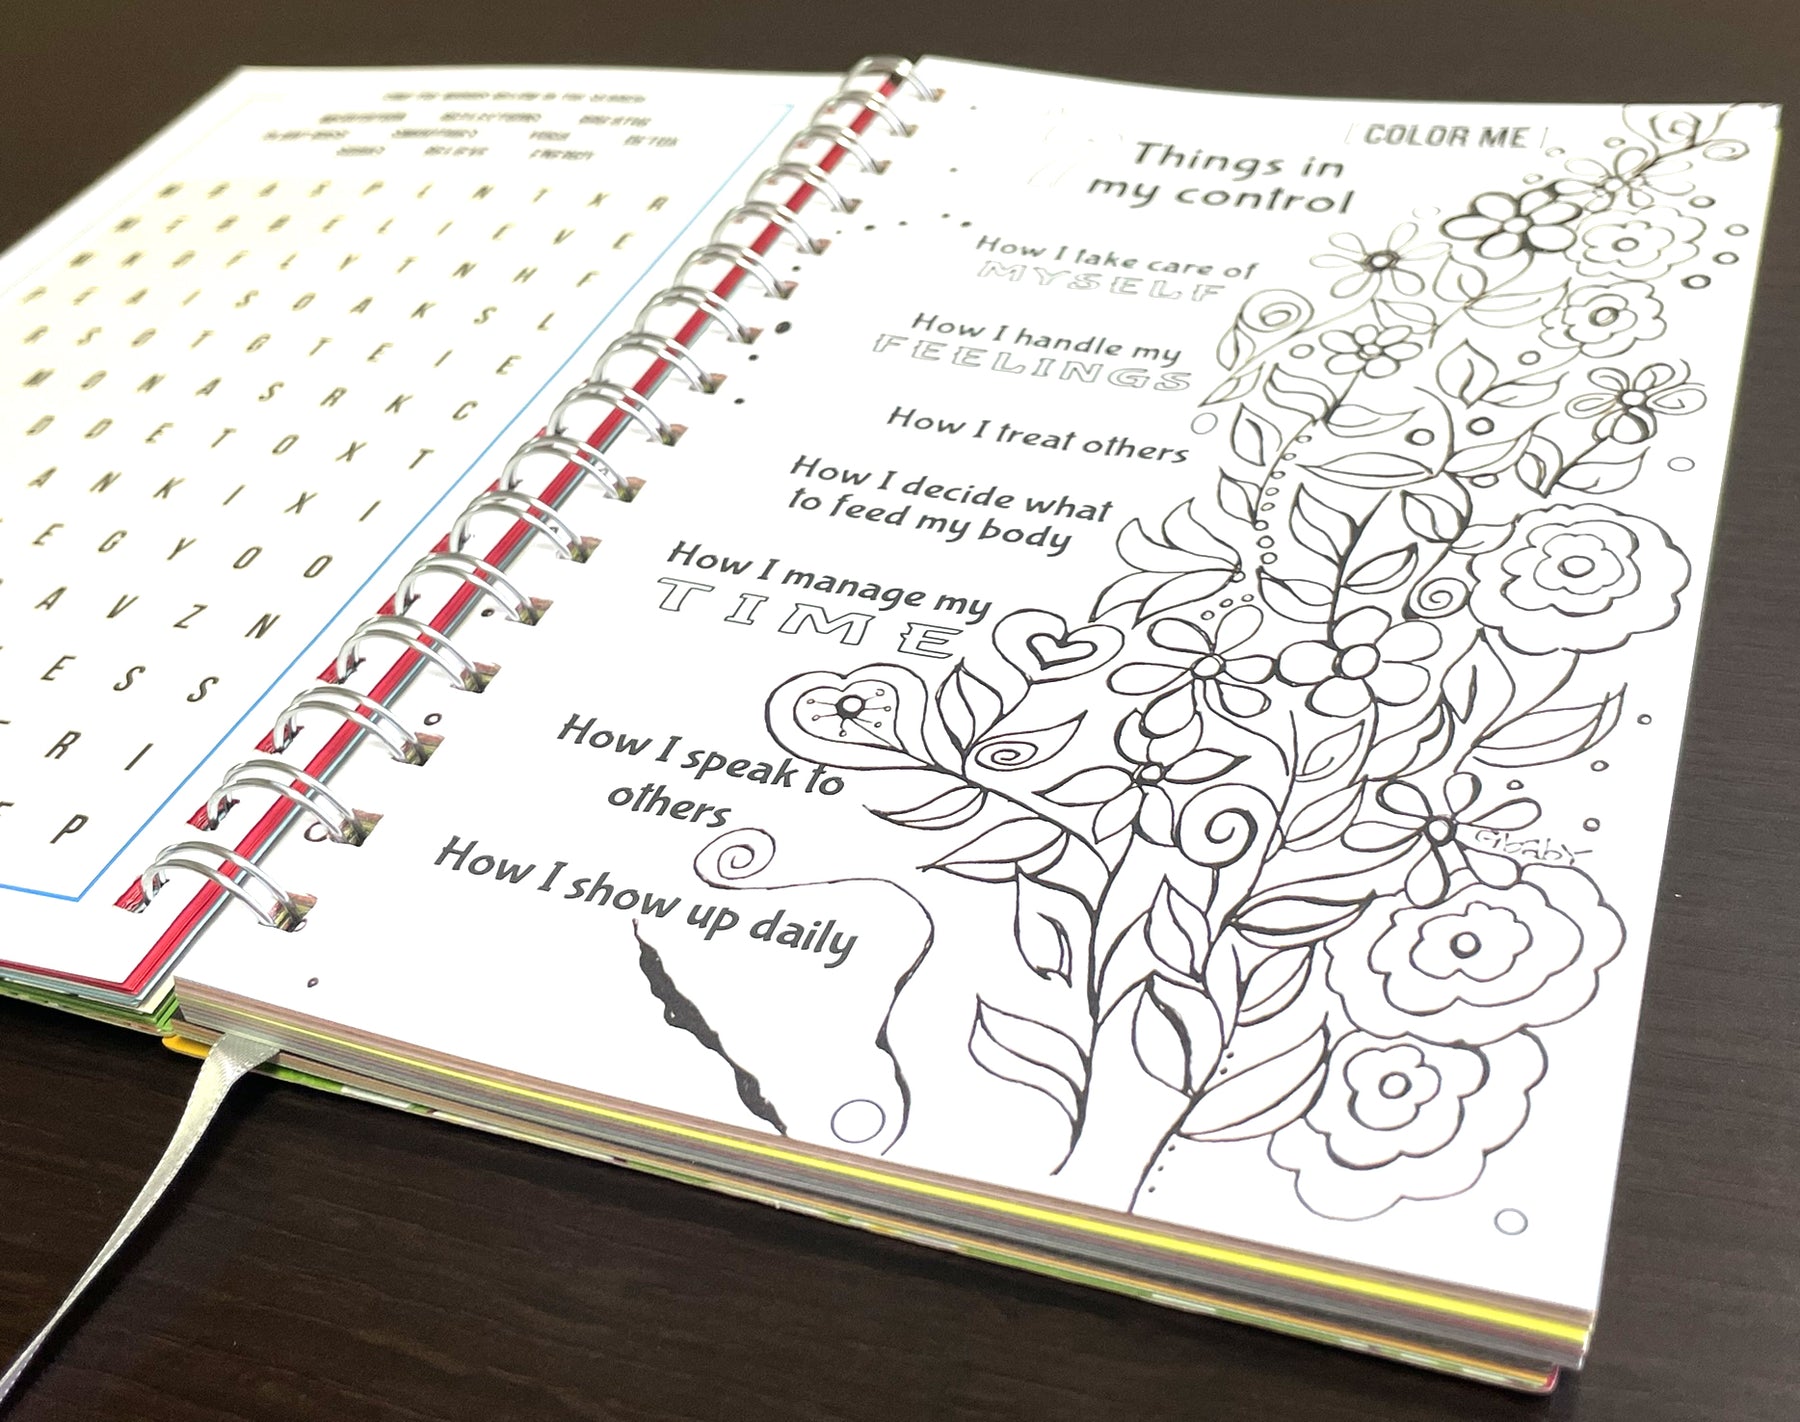 BELIEVE ENERGY
B E L I E V E
L Y T N H F
A I S O A K S L
R S O T G T E I E
M O N A S R K C
D D E T O X T
A N K I X I
E G Y O O
A V Z N
E S S
R I
P
COLOR ME
Things in
my control
How I take care of
MYSELF
How I handle my
FEELINGS
How I treat others
How I decide what
to feed my body
How I manage my
TIME
How I speak to
others
How I show up daily